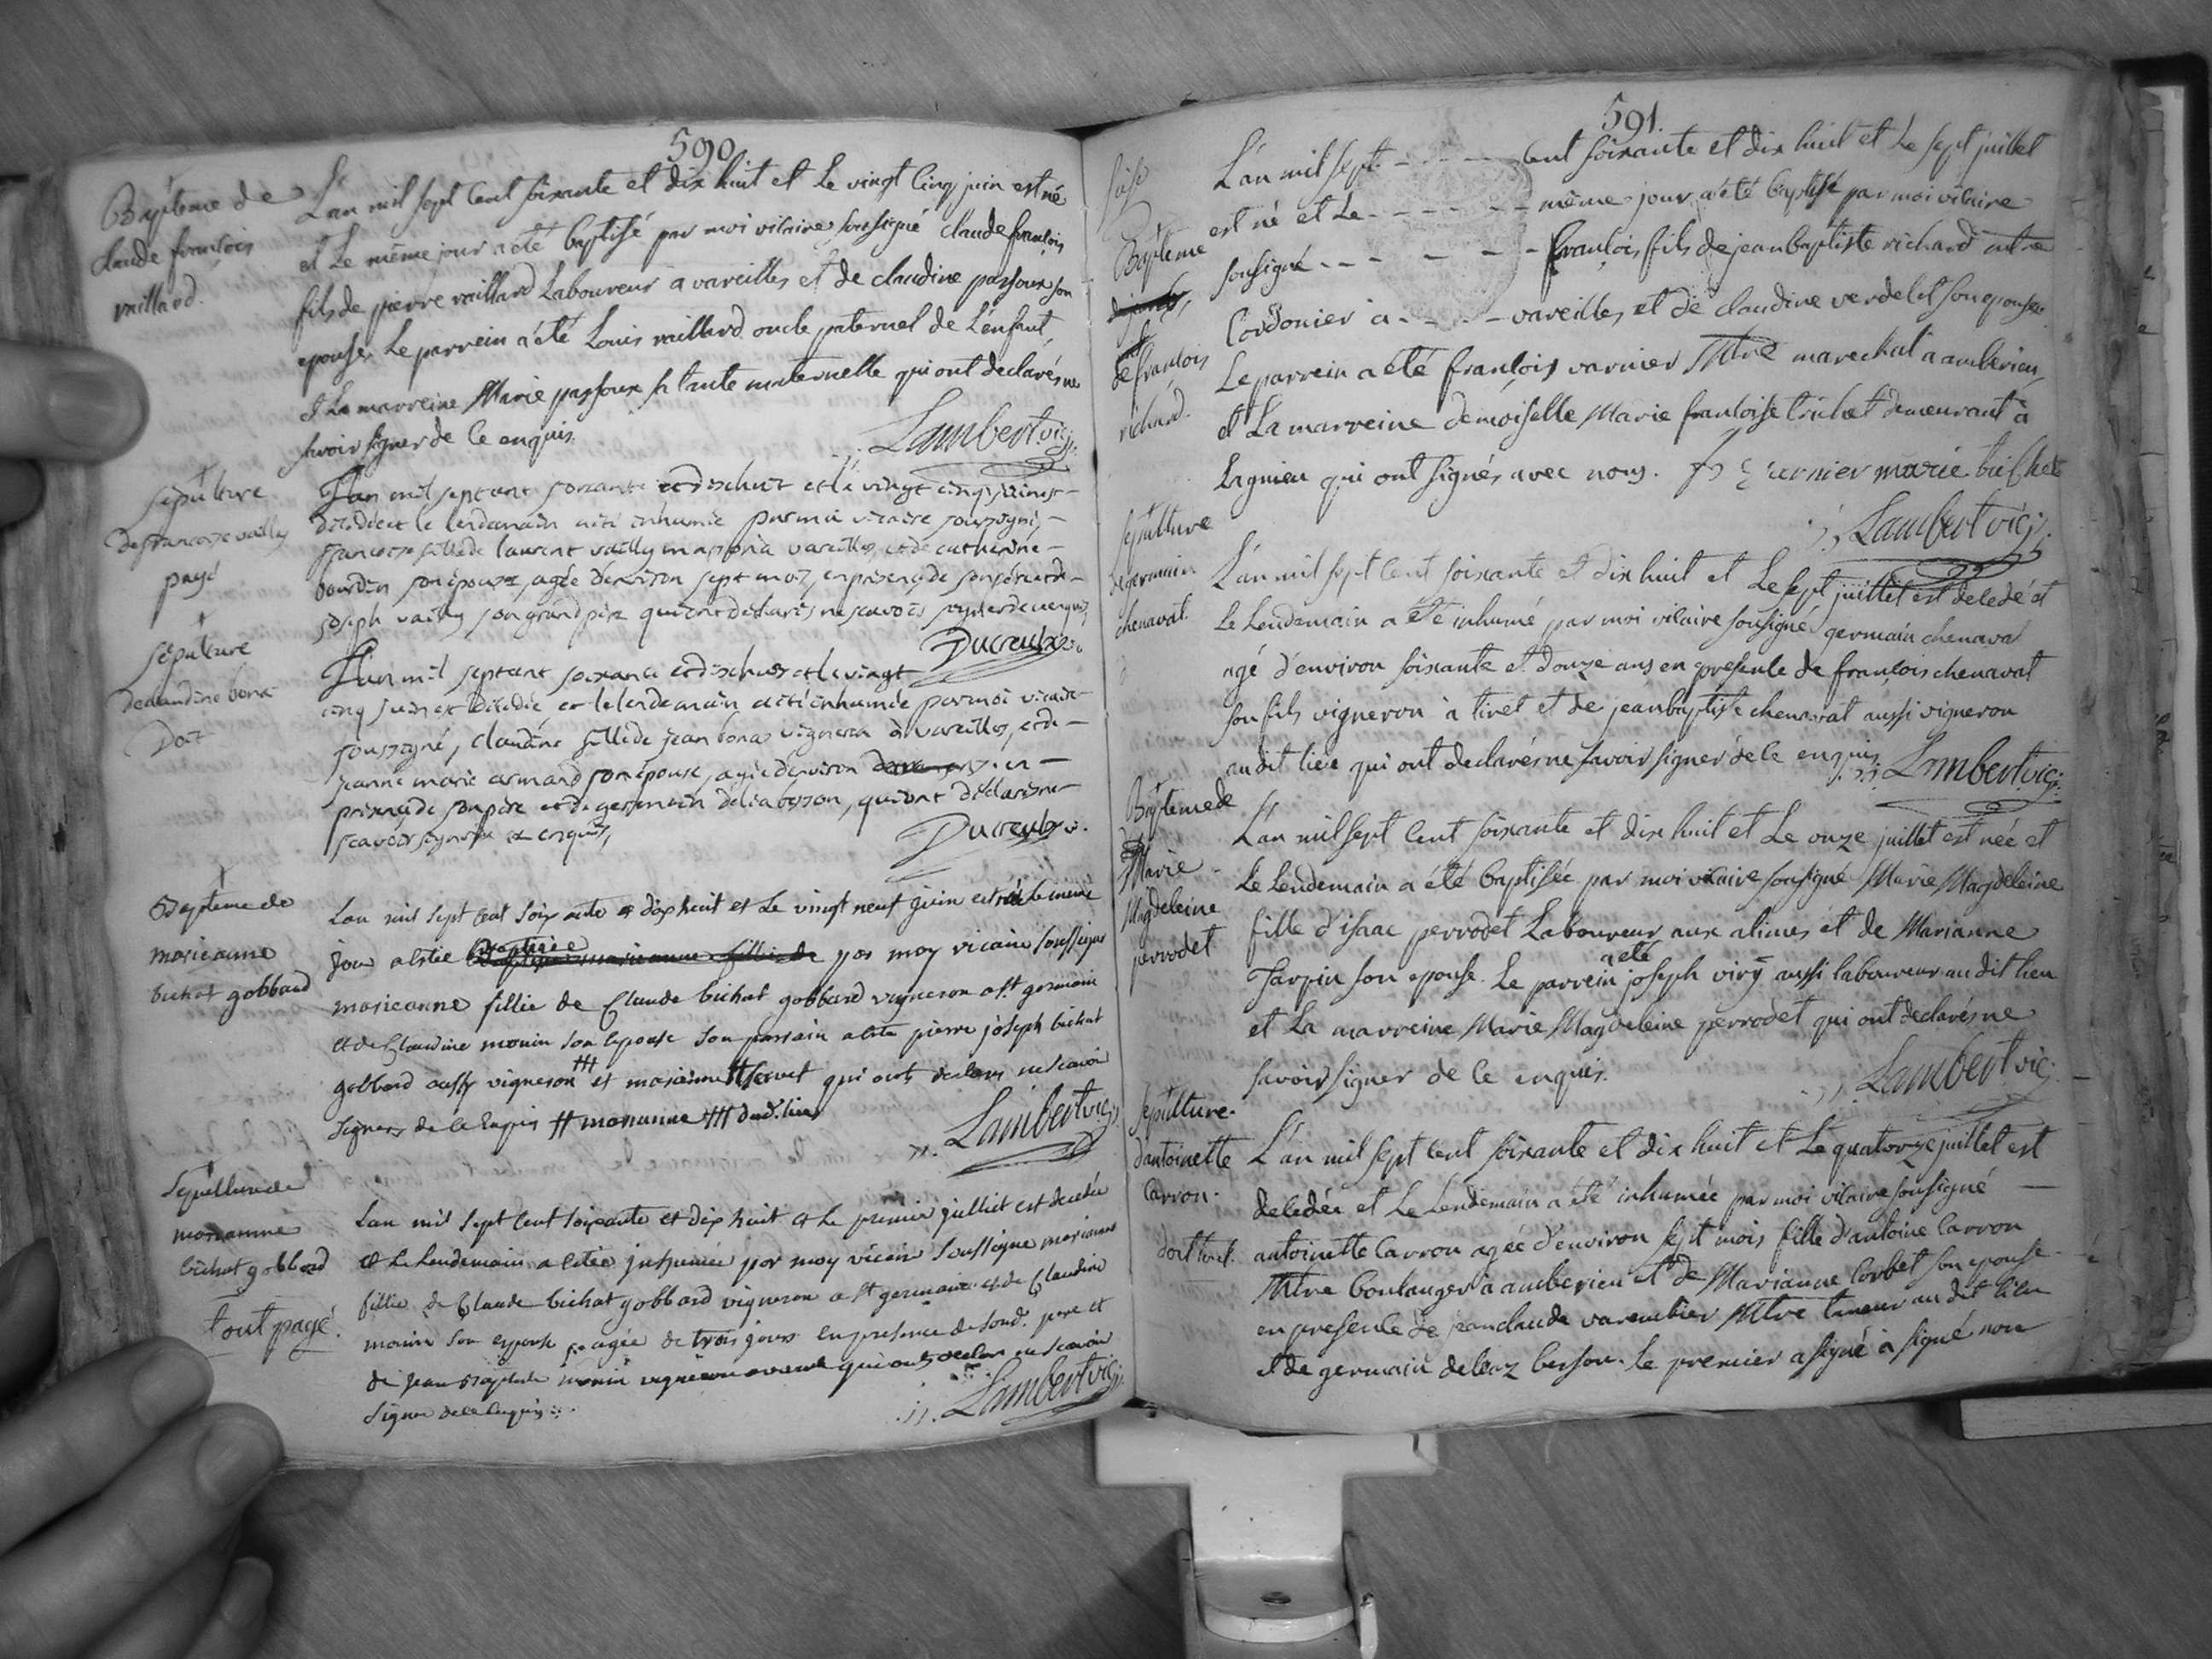 590
Bapteme de
claude francois
vaillard.
L'an mil sept cent soixante et dix huit et Le vingt cinq juin est né
et Le même jour a été baptisé par moi vicaire soussigné claude francois
fils de pierre vaillard Laboureur a vareilles et de claudine passoux son
epouse, Le parrein a été Louis vaillard oncle paternel de L'enfant,
et La marreine Marie passoux sa tante maternelle qui ont declarés ne
savoir signer de ce enquis.
Lambert vic:
sepulture
de francoise vailly
payé
L'an mil sept cent soixante et dix huit et le vingt cinq juin est
décédée et le lendemain a été inhumée par moi vicaire soussigné,
francoise fille de laurent vailly masson à vareilles, et de catherine
bourdin son épouse, agée d'environ sept mois, en présence de son père et de
joseph vailly son grand père qui ont déclarés ne scavoir signer de ce enquis,
Ducreux v.
sépulture
de claudine bona
Doit
L'an mil sept cent soixante et dix huit et le vingt
cinq juin est décédée, et le lendemain a été inhumée par moi vicaire
soussigné, claudine fille de jean bona vigneron à vareilles, et de
jeanne marie armand son épouse, agée d'environ en
présence de son père et de germain deleabesson, qui ont déclarés ne
scavoir signer de ce enquis,
Ducreux v.
Bapteme de
marieanne
bichat gobbard
Lan mil sept cent soix ante et dix huit et Le vingt neuf juin est née le meme
jour a estée baptisée par moy vicaire soussigné
marieanne fillie de Claude bichat gobbard vigneron a st germain
et de Claudine monin son epouse son parrain a ete pierre joseph bichat
gobbard aussy vigneron ǂǂǂ et marianne servet qui onts declarés ne scavoir
signers de ce enquis ǂǂ marianne ǂǂǂ dud. lieu
Lambert vic:
Sepulture de
marianne
bichat gobbard
tout payé.
Lan mil sept cent soixante et dix huit et Le premier juilliet est decedée
et Le Lendemain a estée inhumée par moy vicaire soussigné marianne
fillie de Claude bichat gobbard vigneron a st germain et de Claudine
monin son epouse agée de trois jours en presence de sond. pere et
de jean baptiste monin vigneron qui onts declarés ne scavoir
signer de ce enquis
Lambert vic:
591.
Bapteme
de francois
richard.
L'an mil sept - - - - cent soixante et dix huit et Le sept juillet
est né et Le - - - - - même jour a été baptisé par moi vicaire
sousigné - - - - - francois fils de jeanbaptiste richard
Cordonier à - - - - vareilles, et de claudine verdelet son epouse
Le parrein a été francois varnier Mtre marechal a amberieu,
et La marreine demoiselle Marie francoise trichet demeurant à
Lagnieu qui ont signés avec nous.
Lambert vic:
sepulture
de germain
chenaval.
L'an mil sept cent soixante et dix huit et Le sept juillet est decedé et
Le Lendemain a été inhumé par moi vicaire sousigné germain chenaval
agé d'environ soixante et douze ans en presence de francois chenaval
son fils vigneron à tiret et de jeanbaptiste chenaval aussi vigneron
au dit lieu qui ont declarés ne savoir signer de ce enquis
Lambert vic:
Bapteme de
Marie
Magdeleine
perrodet
L'an mil sept cent soixante et dix huit et Le onze juillet est née et
Le Lendemain a été baptisée par moi vicaire sousigné Marie Magdeleine
fille d'isaac perrodet Laboureur aux alimes et de Marianne
Tarpin son epouse. Le parrein a été joseph viry aussi laboureur au dit lieu
et La marreine Marie Magdeleine perrodet qui ont declarés ne
savoir signer de ce enquis.
Lambert vic:
sepulture
d'antoinette
Carron.
doit tout.
L'an mil sept cent soixante et dix huit et Le quatorze juillet est
decedée et Le Lendemain a été inhumée par moi vicaire sousigné
antoinette Carron agée d'environ sept mois fille d'antoine Carron
Mtre boulanger à amberieu et de Marianne Corbet son epouse
en presence de jeanclaude varembier Mtre taneur au dit lieu
et de germain deleaz besson. Le premier a signé à signé non